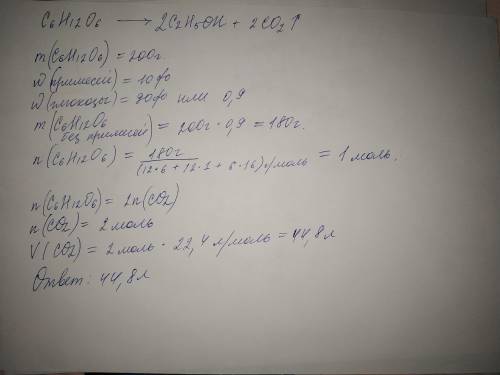 C₆H₁₂O₆ ⟶ 2C₂H₅OH + 2CO₂↑
m(C₆H₁₂O₆) = 200г.
ω(примесей) = 10%
ω(глюкозы) = 90% или 0,9
m(C₆H₁₂O₆ без примесей) = 200г · 0,9 = 180г.
n(C₆H₁₂O₆) = 180г / (12·6 + 12·1 + 6·16) г/моль = 1 моль.
n(C₆H₁₂O₆) = 2n(CO₂)
n(CO₂) = 2 моль
V(CO₂) = 2 моль · 22,4 л/моль = 44,8л
Ответ: 44,8л